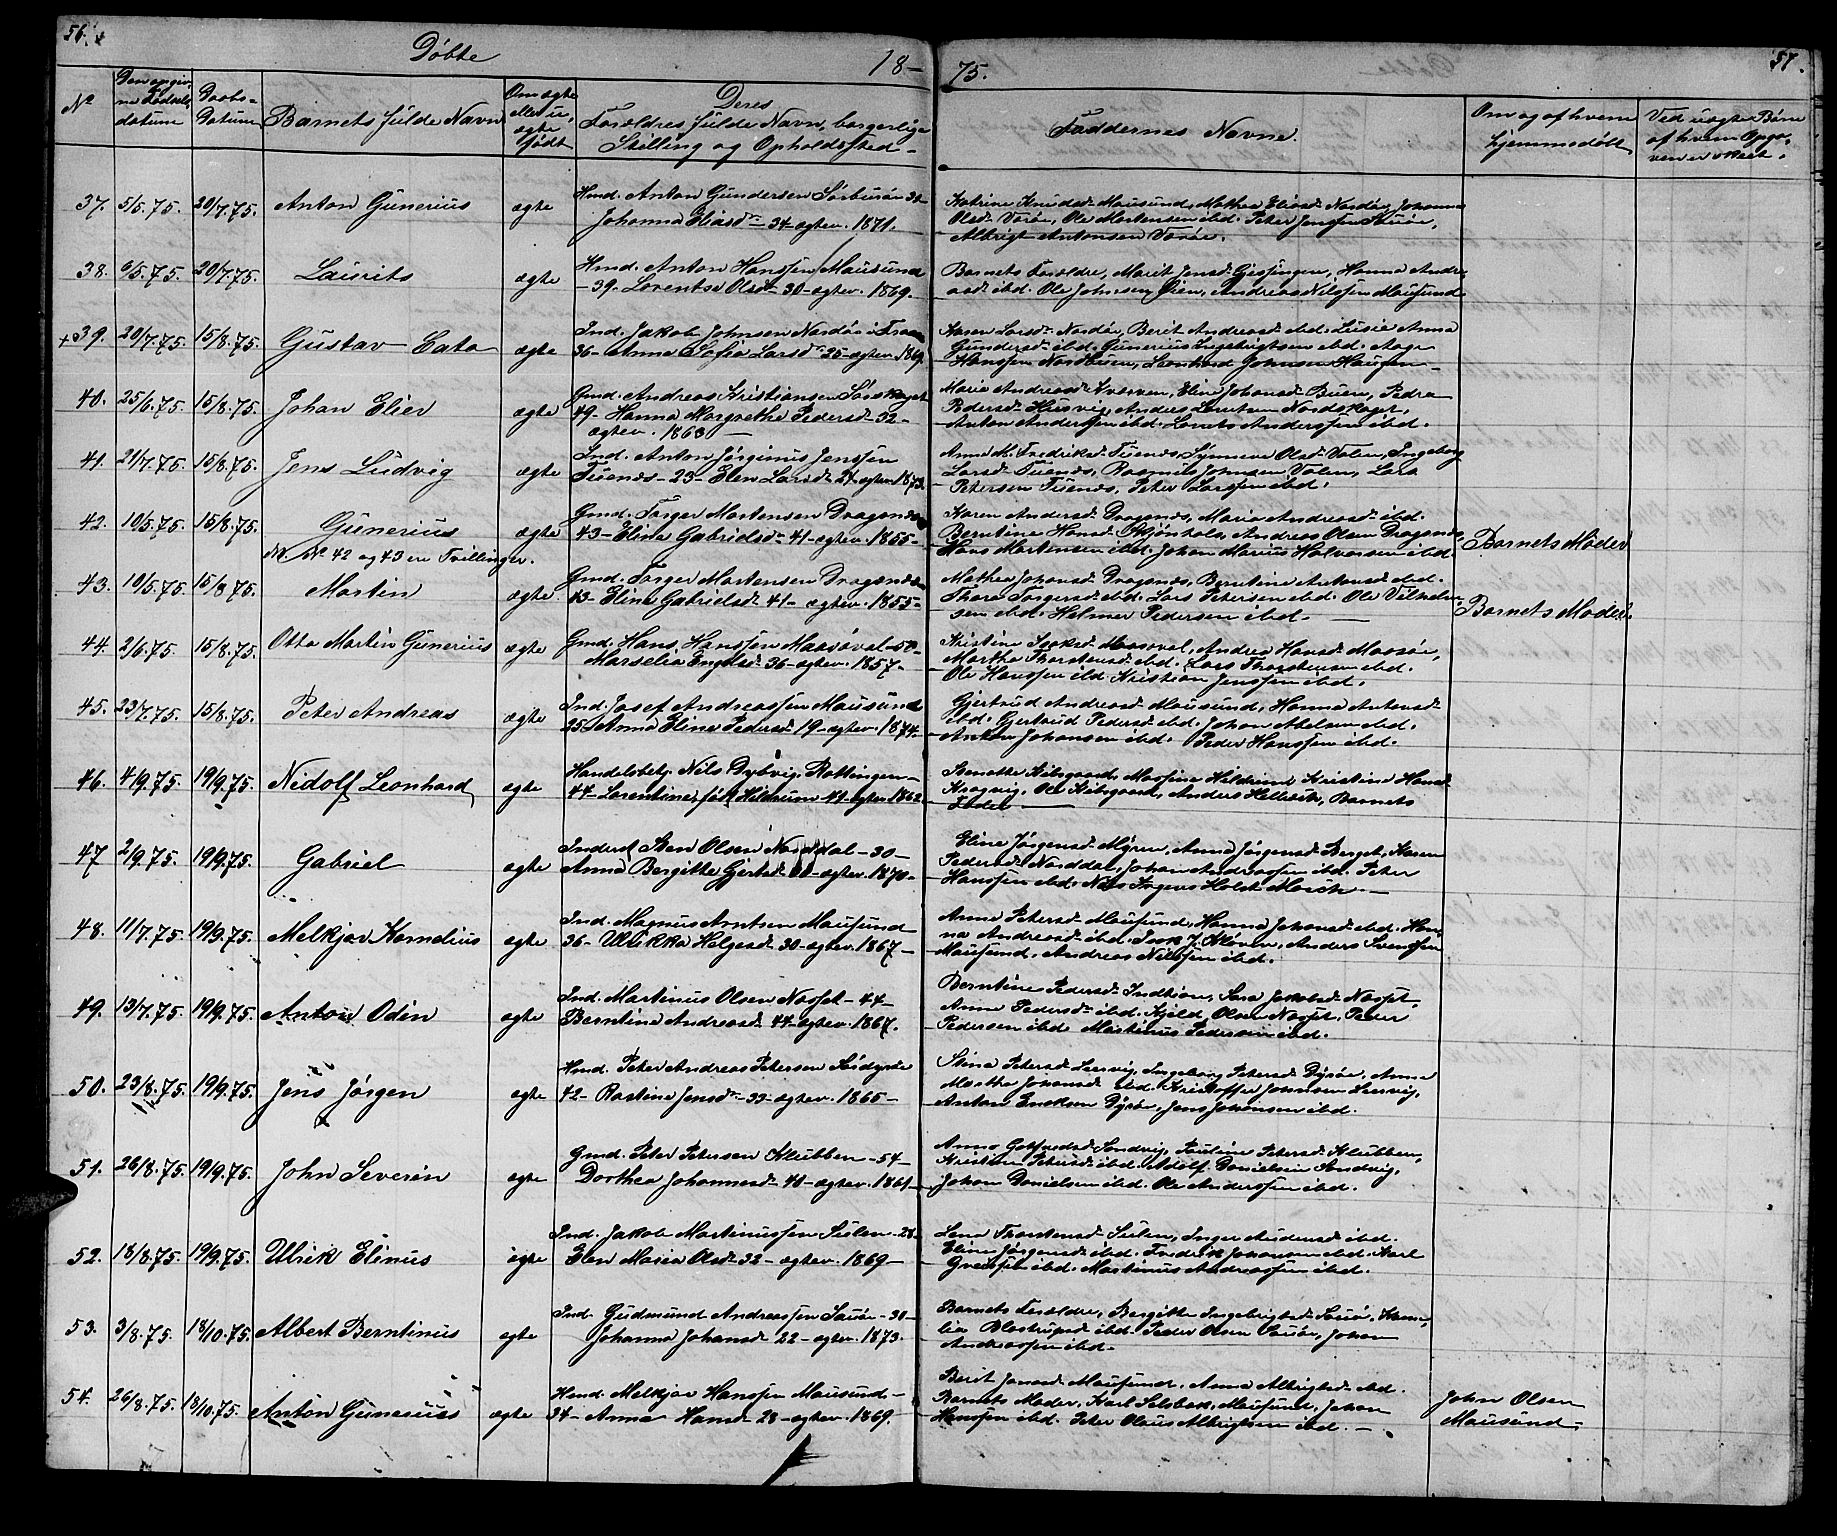 56.
Døbte
18-
75.
57.
№
Den angiv-
ne Fødsels
datum
Daabs-
Datum
Barnets fulde Navn
Om ægte
eller u-
ægte
født
Deres
Forældres fulde Navn, borgerlige
Stilling og Opholdssted-
Faddernes Navne.
Om og af hvem
hjemmedøbt
Ved uægte Børn
af hvem Opga-
ven er skeet.
37. 5/5.75. 20/7.75. Anton Gunerius ægte
Hmd. Anton Gundersen 
Johanna Eliasd - 34 - ægtev. 1871.
Katrine Knudsd. Mausund, Mathea Eliasd. Nordøy, Johanna
Olsd. Vorøe, Ole Mortensen ibd. Peter Jenssen
Albrigt Antonsen Vorøe.
38. 6/5.75. 20/7.75. Laurits ægte
Hmd. Anton Hanssen Mausund
- 39. Lorentse Olsd - 30 - ægtev. 1869.
Barnets Forældre, Marit Jensd. Gjessingen, Hanna Andre
asd. ibd. Ole Johnsen Øien, Andreas Nilssen Mausund
39. 20/7.75. 15/8.75. Gustav Cato ægte
Ind. Jakob Johnsen Nordøe i Froen
36 - Anna Sofia Larsd. 25 - ægtev. 1869.
Karen Larsd. Nordøe, Berit Andreasd. ibd. Lusie Anna
Gundersd. ibd. Gunerius Ingebrigtsen ibd. Aage
Hanssen Nordbuen, Leonhard Johnsen
40. 25/6.75. 15/8.75. Johan Elier ægte
Gmd. Andreas Kristiansen Sørskaget
49. Hanna Margrethe Pedersd - 32 -
ægtev. 1863 -
Maria Andreasd. Kværven, Eline Johansd. Buen, Pedra
Pedersd. Husvig, Anders Nordskaget,
Anton Anderssen ibd. Anderssen ibd.
41. 21/7.75. 15/8.75. Jens Ludvig ægte
Ind. Anton Jørginus Jenssen
Tuenæs - 23 - Elen Larsd. 24 - ægtev. 1873.
Anne M. Fredriksd. Tuenæs, Synneve Olsd. Valen, Ingeborg
Larsd. Tuenæs, Rasmus Johnsen Valen, Lars
Petersen Tuenæs, Peter Larssen ibd.
42. 10/5.75. 15/8.75. Gunerius ægte
Nb. № 42 og 43 ere Tvillinger.
Gmd. Torger Mortensen Dragsnæs
43 - Elina Gabrielsd - 41 - ægtev. 1855 -
Karen Andersd. Dragsnæs, Maria Andreasd. ibd.
Berntine Hansd. , Andreas Olsen Dragsnæs
Hans Mortensen ibd. Johan Marius Halvorsen ibd.
Barnets Moder
43. 10/5.75. 15/8.75. Martin ægte
Gmd. Torger Mortensen Dragsnæs
43 - Elina Gabrielsd. 41 - ægtev. 1855 -
Mathea Johansd. Dragsnæs, Berntine Antonsd. ibd.
Thora Torgersd. ibd. Lars Petersen ibd. Ole Vilhelm-
sen ibd. Helmer Pedersen ibd. -
Barnets Moder.
44. 2/6.75. 15/8.75. Otto Martin Gunerius ægte
Gmd. Hans Hanssen Maasøval - 50 -
Marselia Engelsd - 36 - ægtev. 1857 -
Kristine Isaksd. Maasøval, Andrea Hansd. Maasøe,
Martha Thorstensd. ibd. Lars Thorstensen ibd.
Ole Hanssen ibd. Kristian Jenssen ibd.
45. 23/7.75. 15/8.75. Peter Andreas ægte
Ind. Josef Andreassen Mausund
25 - Anna Eline Pedersd. 19 - ægtev. 1874.
Gjertrud Andreasd. Mausund, Hanna Antonsd.
ibd. Gjertrud Pedersd. ibd. Johan Abelsen ibd.
Anton Johansen ibd. Peder Hanssen ibd.
46. 4/9.75. 19/9.75. Nidolf Leonhard ægte
Handelsbetj. Nils Dybvig, Rottingen -
44 - Lorentine, født Hildrum 41 - ægtev. 1862
Benatte Kibsgaard, Massine Hildrum, Kristine Hansd.
Krogvig, Ole Kibsgaard, Anders Hellesvik, Barnets
Fader -
47 2/9.75. 19/9.75. Gabriel ægte
Inderst Sten Olsen Norddal - 30 -
Anna Bergitte Gjertsd. - ægtev. 1870 -
Eline Jørgensd. Myren, Anna Jørgensd. Berget, Karen
Pedersd. Norddal, Johan Andreassen ibd. Peter
Hanssen ibd. Nils Ingers Holdt -
48. 11/7.75. 19/9.75. Melkjor Kornelius ægte
Ind. Magnus Arntsen Mausund
36 - Ulrikka Helgesd - 30 - ægtev. 1867 -
Anna Petersd. Mausund, Hanna Johansd. ibd. Han-
na Andreasd. ibd. Isak J. Kløven, Anders Svendsen
Mausund, Andreas Nilssen ibd.
49. 13/7.75. 19/9.75. Anton Odin ægte
Ind. Martinus Olsen Nesset - 44 -
Berntine Andreasd. 44 - ægtev. 1867.
Berntine Pedersd. Indtian, Sara Jakobsd. Nesset,
Anne Pedersd. ibd. Kjeld Olsen Nesset, Peder
Pedersen ibd. Martinus Pedersen ibd.
50. 23/8.75. 19/9.75. Jens Jørgen ægte
Hmd. Peter Andreas Petersen Sødyrøe
42 - Rastine Jensd - 33 - ægtev. 1865 -
Stina Petersd. Leervig, Ingeborg Petersd. Dyrøe, Anna
Martha Johansd. ibd. Kristoffer Johnsen Leervig,
Anton Ericksen Dyrøe, Jens Johansen ibd.
51. 26/8.75. 19/9.75. John Severin ægte
Gmd. Peter Petersen Klubben - 54 -
Dorthea Johannesd. 40 - ægtev. 1861 -
Anna Sandvig, Pauline Petersd. Klubben,
Kristine Petersd. ibd. Adolf Danielsen Sandvig,
Johan Danielsen ibd. Ole Anderssen ibd.
52. 18/8.75. 19/9.75. Ulrik Elinus ægte
Ind. Jakob Martinussen Sulen - 28.
Elen Maria Olsd. 32 - ægtev. 1869 -
Lena Thorstensd. Sulen, Inger Andersd. ibd.
Eline Jørgensd. ibd. Fredrik Johansen ibd. Karl
ibd. Martinus Andreassen ibd.
53. 3/8.75. 18/10.75. Albert Berntinus ægte
Ind. Gudmund Andreassen Sauøe - 30 -
Johanna Johansd. 22 - ægtev. 1873
Barnets Forældre, Bergitta Ingebrigtsd. Sauøe, 
ibd. Peder Olsen Sauøe, Johan
Andreassen ibd.
54. 26/8.75. 18/10.75. Anton Gunerius ægte
Hmd. Melkjor Hanssen Mausund -
34 - Anna Hansd - 28 - ægtev. 1869.
Berit Jonasd. Mausund, Anna Albrigtsd. ibd.
Barnets Moder, Karl Selsbak, Mausund, Johan
Hanssen ibd. Peter Olaus Albrigtsen ibd. -
John Olsen
Mausund.